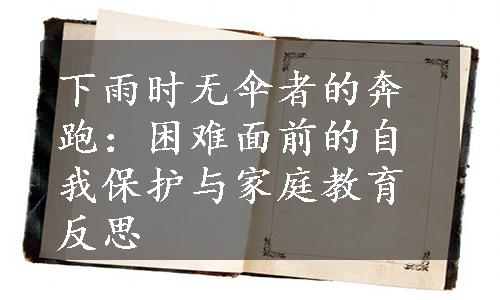 下雨时无伞者的奔
跑：困难面前的自
我保护与家庭教育
反思